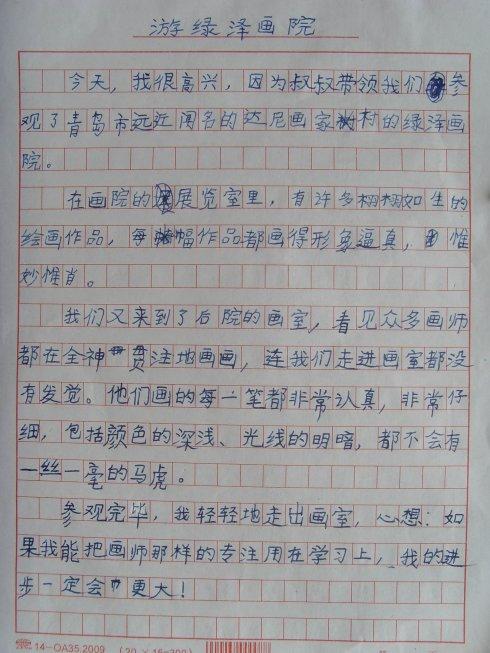 游绿泽画院
今天，我很高兴，因为叔叔带领我们参
观了青岛市远近闻名的达尼画家村的绿泽画
院。
在画院的展览室里，有许多栩栩如生的
绘画作品，每幅作品都画得形象逼真，惟
妙惟肖。
我们又来到了后院的画室，看见众多画师
都在全神贯注地画画，连我们走进画室都没
有发觉。他们画的每一笔都非常认真，非常仔
细，包括颜色的深浅、光线的明暗，都不会有
一丝一毫的马虎。
参观完毕，我轻轻地走出画室，心想：如
果我能把画师那样的专注用在学习上，我的进
步一定会更大！
14-OA35 2009 (20×15=300)